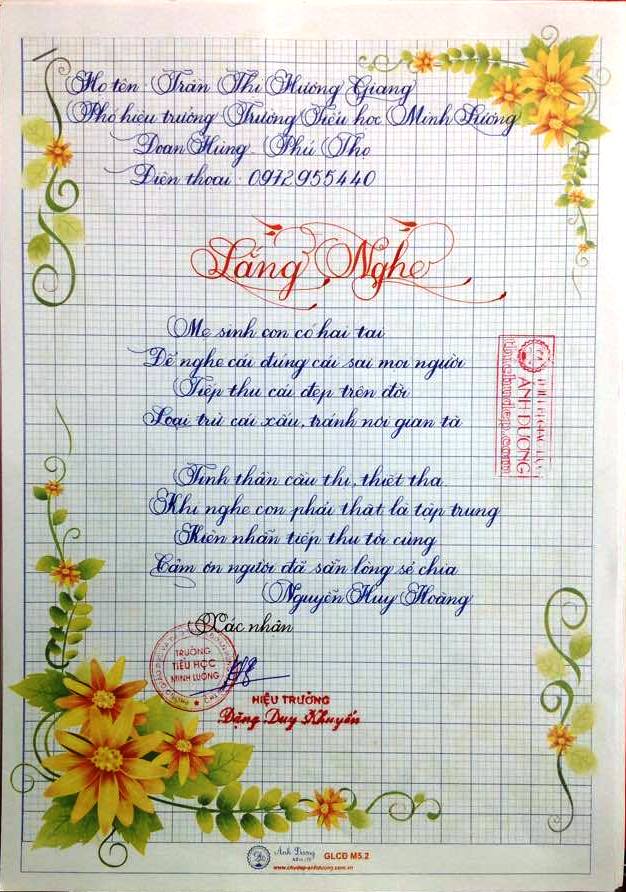 Họ tên: Trần Thị Hương Giang
Phó hiệu trưởng Trường Tiểu học Minh Lương
Đoan Hùng - Phú Thọ
Điện thoại: 0972955440
Lắng Nghe
Mẹ sinh con có hai tai
Để nghe cái đúng cái sai mọi người
Tiếp thu cái đẹp trên đời
Loại trừ cái xấu, tránh nơi gian tà
Tinh thần cầu thị, thiết tha
Khi nghe con phải thật là tập trung
Kiên nhẫn tiếp thu tới cùng
Cảm ơn người đã sẵn lòng sẻ chia
Nguyễn Huy Hoàng
Xác nhận
TRƯỜNG
TIỂU HỌC
MINH LƯƠNG
HIỆU TRƯỞNG
Đặng Duy Khuyến
ÁNH DƯƠNG
Ánh Dương
GLCD M5.2
www.chudep-anhduong.com.vn